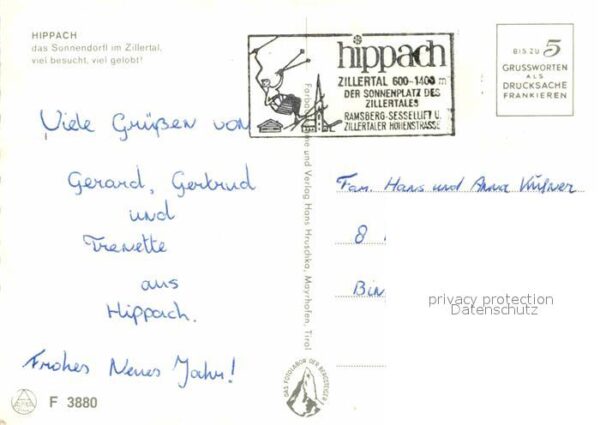 HIPPACH
das Sonnendorfl im Zillertal,
viel besucht, viel gelobt!
hippach
ZILLERTAL 600-1400 m
DER SONNENPLATZ DES
ZILLERTALES
RAMSBERG-SESSELLIFT U.
ZILLERTALER HÖHENSTRASSE
BIS ZU 5
GRUSSWORTEN
ALS
DRUCKSACHE
FRANKIEREN
Viele Grüßen von
Gerard, Gertrud
und
Trenette
aus
Hippach.
Frohes Neues Jahr!
Fam. Hans und Anna
8
Bin
und Verlag Hans Hruschka, Mayrhofen, Tirol
DAS FOTOLABOR DER BERGSTEIGER
privacy protection
Datenschutz
F 3880